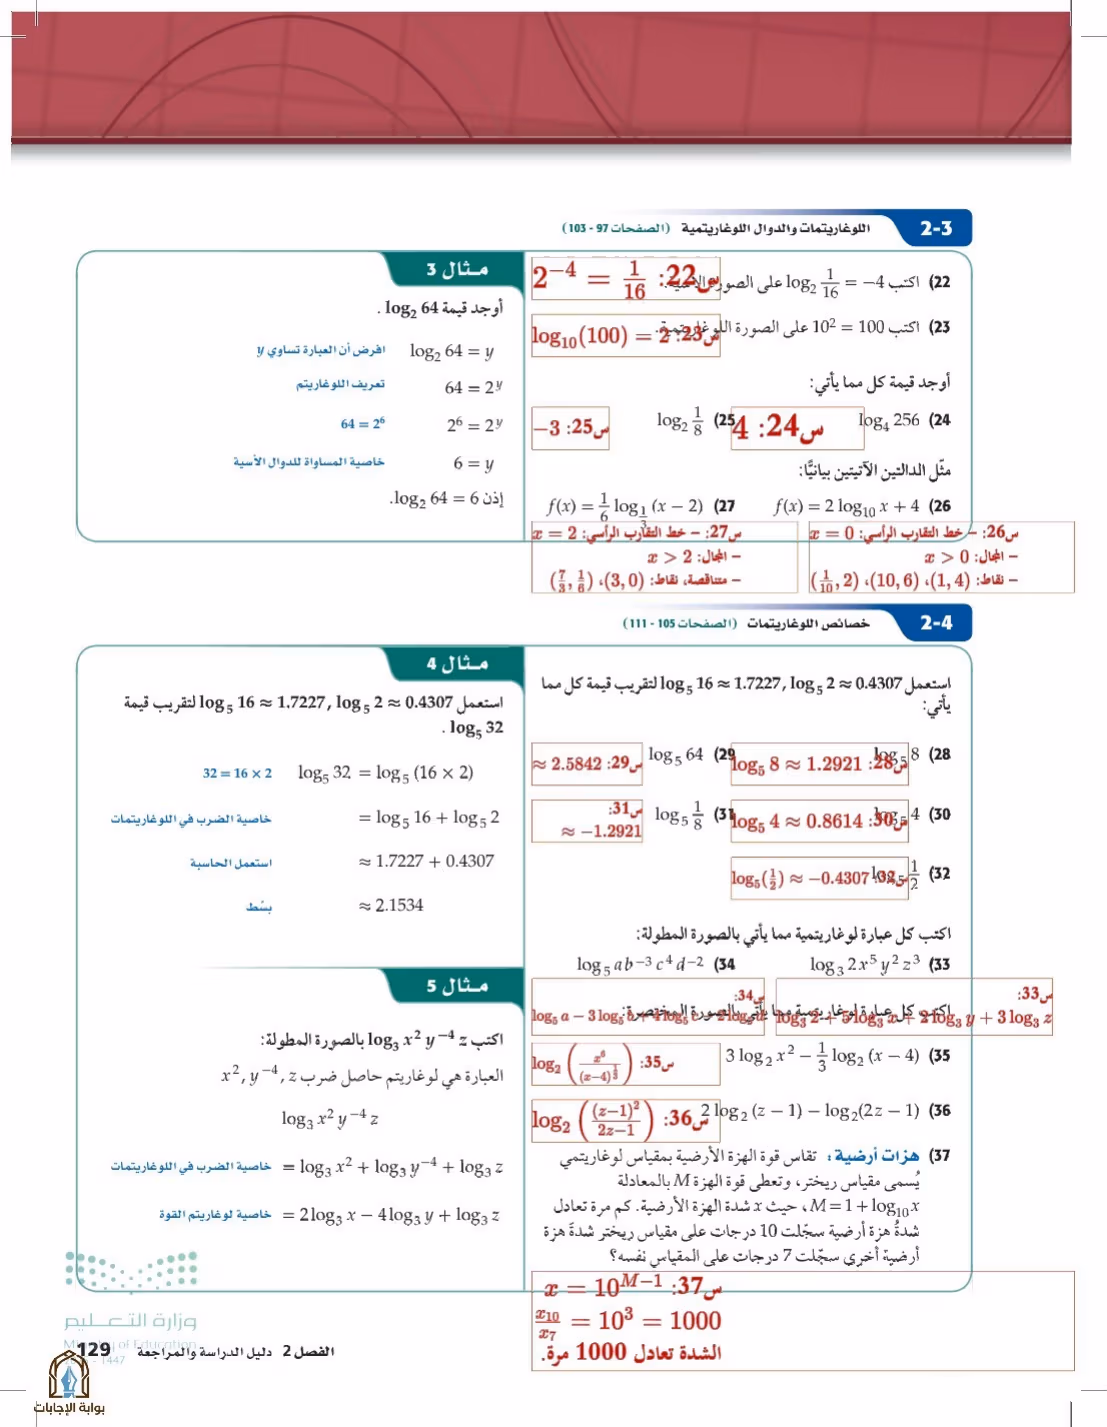 2-3 اللوغاريتمات والدوال اللوغاريتمية (الصفحات 97 - 103)
22) اكتب log₂ 1/16 = −4 على الصورة الأسية.
س22: 2⁻⁴ = 1/16
23) اكتب 10² = 100 على الصورة اللوغاريتمية.
س23: log₁₀(100) = 2
أوجد قيمة كل مما يأتي:
24) log₄ 256
س24: 4
25) log₂ 1/8
س25: −3
مثّل الدالتين الآتيتين بيانيًّا:
26) f(x) = 2 log₁₀ x + 4
27) f(x) = 1/6 log_{1/3} (x − 2)
س26: – خط التقارب الرأسي: x = 0
– المجال: x > 0
– نقاط: (1, 4)، (10, 6)، (1/10, 2)
س27: – خط التقارب الرأسي: x = 2
– المجال: x > 2
– متناقصة، نقاط: (3, 0)، (7/3, 1/6)
مثال 3
أوجد قيمة log₂ 64 .
log₂ 64 = y افرض أن العبارة تساوي y
64 = 2ʸ تعريف اللوغاريتم
2⁶ = 2ʸ 64 = 2⁶
6 = y خاصية المساواة للدوال الأسية
إذن log₂ 64 = 6.
2-4 خصائص اللوغاريتمات (الصفحات 105 - 111)
استعمل log₅ 16 ≈ 1.7227, log₅ 2 ≈ 0.4307 لتقريب قيمة كل مما
يأتي:
28) log₅ 8
س28: log₅ 8 ≈ 1.2921
29) log₅ 64
س29: ≈ 2.5842
30) log₅ 4
س30: log₅ 4 ≈ 0.8614
31) log₅ 1/8
س31:
≈ −1.2921
32) log₅ 1/2
س32: log₅(1/2) ≈ −0.4307
اكتب كل عبارة لوغاريتمية مما يأتي بالصورة المطولة:
33) log₃ 2x⁵ y² z³
34) log₅ ab⁻³ c⁴ d⁻²
س33:
log₃ 2 + 5 log₃ x + 2 log₃ y + 3 log₃ z
س34:
log₅ a − 3 log₅ b + 4 log₅ c − 2 log₅ d
اكتب كل عبارة لوغاريتمية مما يأتي بالصورة المختصرة:
35) 3 log₂ x² − 1/3 log₂ (x − 4)
س35: log₂ (x⁶/(x−4)^{1/3})
36) 2 log₂ (z − 1) − log₂(2z − 1)
س36: log₂ ((z−1)²/2z−1)
37) هزات أرضية: تقاس قوة الهزة الأرضية بمقياس لوغاريتمي
يُسمى مقياس ريختر، وتعطى قوة الهزة M بالمعادلة
M = 1 + log₁₀ x ، حيث x شدة الهزة الأرضية. كم مرة تعادل
شدةُ هزة أرضية سجّلت 10 درجات على مقياس ريختر شدةَ هزة
أرضية أخرى سجّلت 7 درجات على المقياس نفسه؟
س37: x = 10^{M−1}
x₁₀/x₇ = 10³ = 1000
الشدة تعادل 1000 مرة.
مثال 4
استعمل log₅ 16 ≈ 1.7227, log₅ 2 ≈ 0.4307 لتقريب قيمة
log₅ 32 .
log₅ 32 = log₅ (16 × 2) 32 = 16 × 2
= log₅ 16 + log₅ 2 خاصية الضرب في اللوغاريتمات
≈ 1.7227 + 0.4307 استعمل الحاسبة
≈ 2.1534 بسّط
مثال 5
اكتب log₃ x² y⁻⁴ z بالصورة المطولة:
العبارة هي لوغاريتم حاصل ضرب x², y⁻⁴, z
log₃ x² y⁻⁴ z
= log₃ x² + log₃ y⁻⁴ + log₃ z خاصية الضرب في اللوغاريتمات
= 2 log₃ x − 4 log₃ y + log₃ z خاصية لوغاريتم القوة
وزارة التعليم
Ministry of Education
1447
الفصل 2 دليل الدراسة والمراجعة 129
بوابة الإجابات